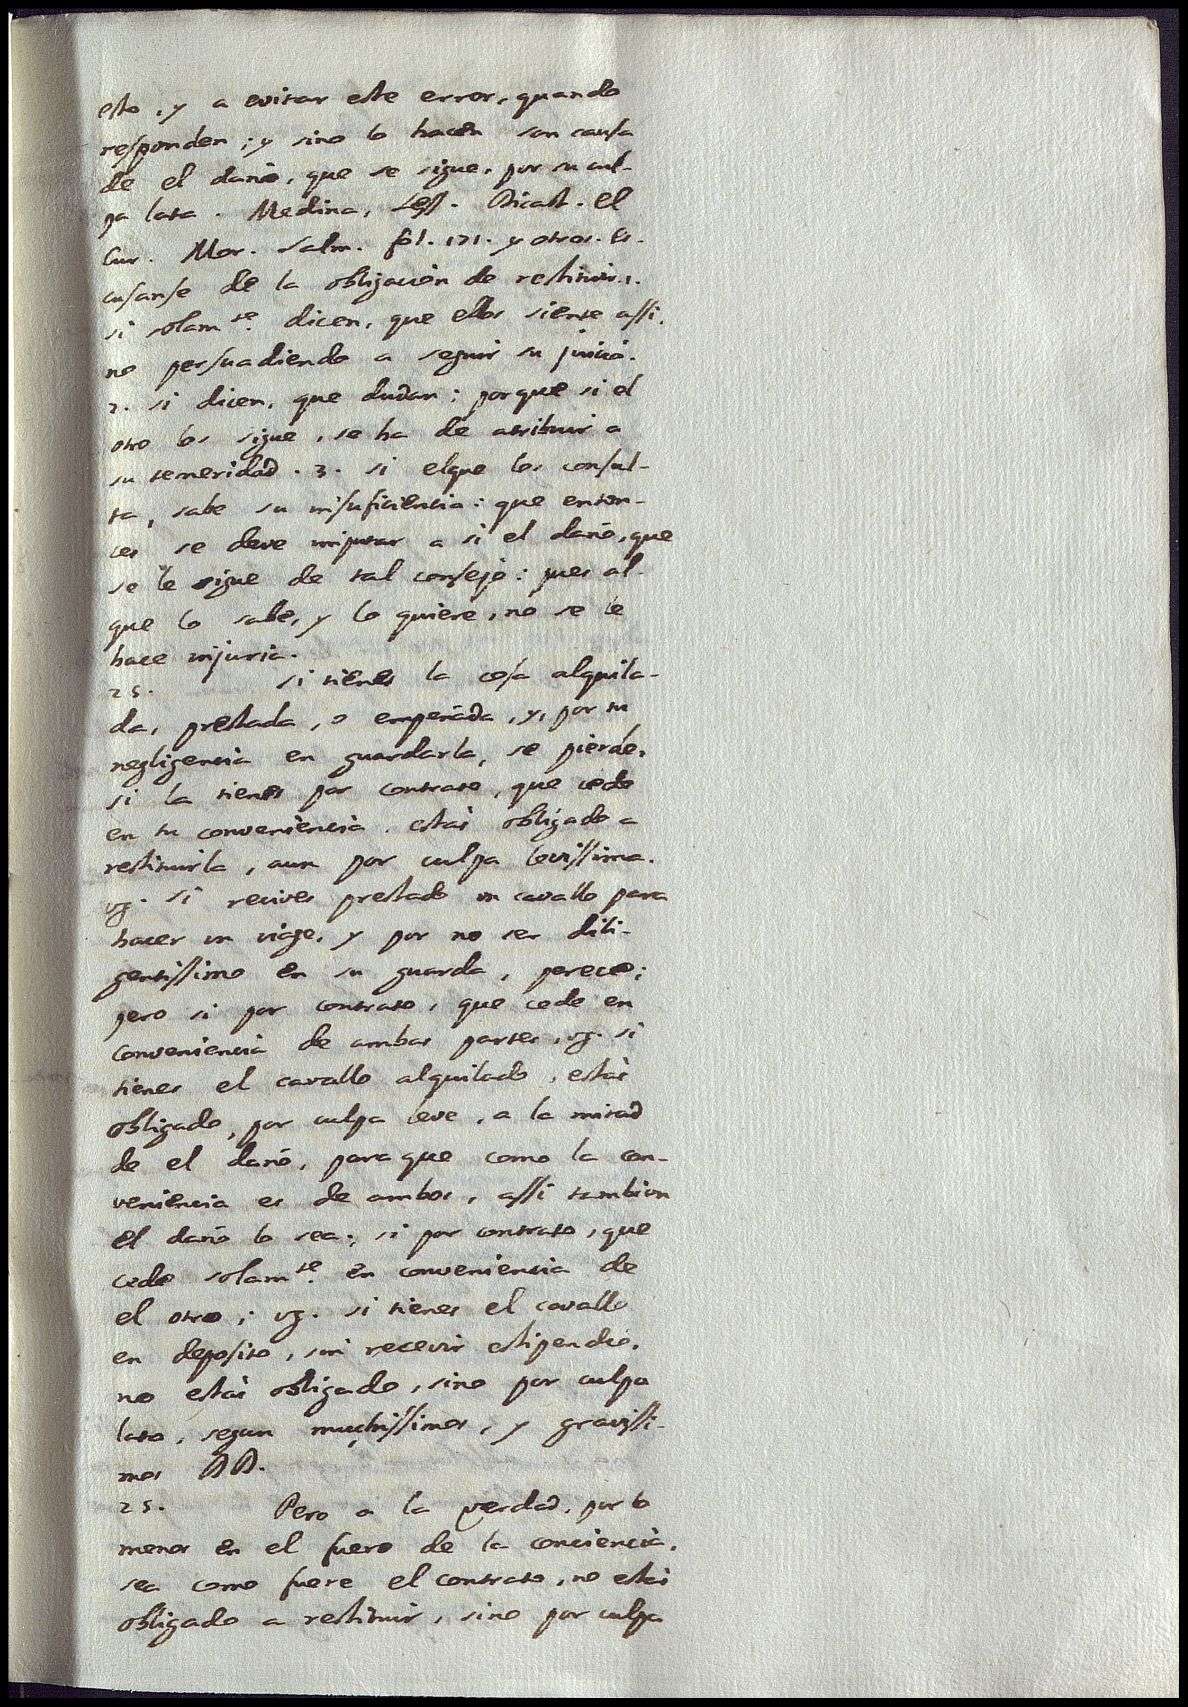 esto, y a evitar este error, quando
responden; y sino lo hacen son causa
de el daño, que se sigue, por su cul-
pa lata. Medina, Less. Dicast. el
Cur. Mor. Salm. fol. 171. y otros. Es-
cusanse de la obligacion de restituir. 1.
si solam.te dicen, que ellos siente assi,
no persuadiendo a seguir su juicio.
2. si dicen, que dudan; porque si el
otro los sigue, se ha de atribuir a
su temeridad. 3. si elque los consul-
ta, sabe su insuficiencia: que enton-
ces se deve imputar a si el daño, que
se le sigue de tal consejo: pues al
que lo sabe, y lo quiere, no se le
hace injuria.
25. Si tienes la cosa alquila-
da, prestada, o empeñada, y, por tu
negligencia en guardarla, se pierde,
si la tienes por contrato, que cede
en tu conveniencia, estás obligado a
restituirla, aun por culpa levissima.
vg. si recives prestado un cavallo para
hacer un viage, y por no ser dili-
gentissimo en su guarda, perece;
pero si por contrato, que cede en
conveniencia de ambas partes, vg. si
tienes el cavallo alquilado, estás
obligado, por culpa leve, a la mitad
de el daño, paraque como la con-
veniencia es de ambos, assi tambien
el daño lo sea; si por contrato, que
cede solam.te en conveniencia de
el otro; vg. si tienes el cavallo
en deposito, sin recevir estipendio,
no estás obligado, sino por culpa
lata, segun muchissimos, y gravissi-
mos DD.
25. Pero a la verdad, por lo
menos en el fuero de la conciencia,
sea como fuere el contrato, no estás
obligado a restituir, sino por culpa